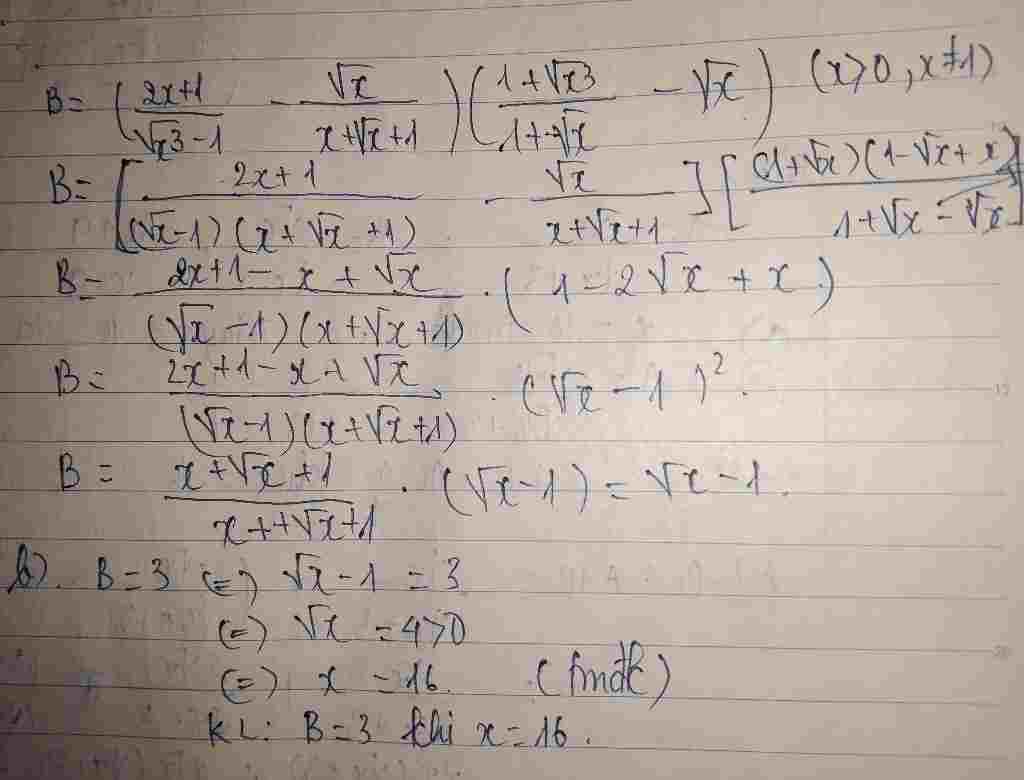 B = (2x+1/√x3-1 - √x/x+√x+1)(1+√x3/1+√x - √x) (x>0, x≠1)
B = [2x+1/(√x-1)(x+√x+1) - √x/x+√x+1][(1+√x)(1-√x+x)/1+√x - √x]
B = 2x+1-x+√x/(√x-1)(x+√x+1) . (1-2√x+x)
B = 2x+1-x+√x/(√x-1)(x+√x+1) . (√x-1)².
B = x+√x+1/x++√x+1 . (√x-1) = √x-1.
b). B=3 (=) √x-1 = 3
(=) √x = 4>0
(=) x = 16. (tmđk)
KL: B=3 khi x=16.